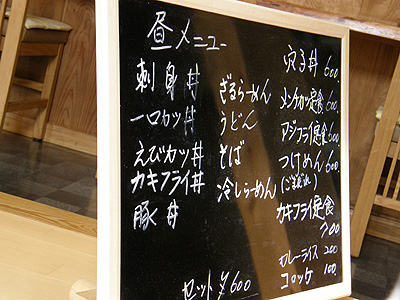 昼メニュー
刺身丼
一口カツ丼
えびカツ丼
カキフライ丼
豚丼
ざるらーめん
うどん
そば
冷しらーめん
セット ¥600
穴子丼 600
メンチカツ定食 600
アジフライ定食 600
つけめん 600
(ごまだれ)
カキフライ定食
700
カレーライス 200
コロッケ 100